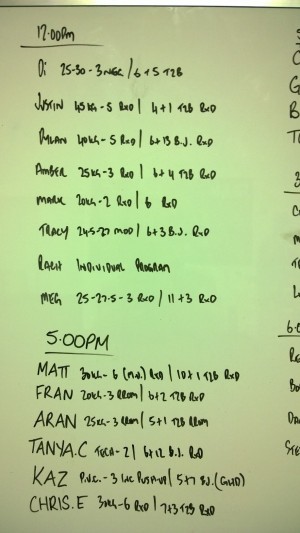 12.00pm
Di 25-30-3 NEG / 6+5 T2B
JUSTIN 45KG-5 RxD / 4+1 T2B RxD
DYLAN 40KG-5 RxD / 6+13 B.J. RxD
AMBER 25KG-3 RxD / 6+4 T2B RxD
MARK 20KG-2 RxD / 6 RxD
TRACY 24.5-27 MOD / 6+3 B.J. RxD
RACH INDIVIDUAL PROGRAM
MEG 25-27.5-3 RxD / 11+3 RxD
5.00PM
MATT 30KG-6 (M.U.) RxD / 10+1 T2B RxD
FRAN 20KG-3 RROM / 6+2 T2B RxD
ARAN 25KG-3 RROM / 5+1 T2B RROM
TANYA.C TECH-2 / 6+12 B.J. RxD
KAZ P.V.C.-3 INC PUSHUP / 5+7 B.J. (GHD)
CHRIS.E 30KG-6 RxD / 7+3 T2B RxD